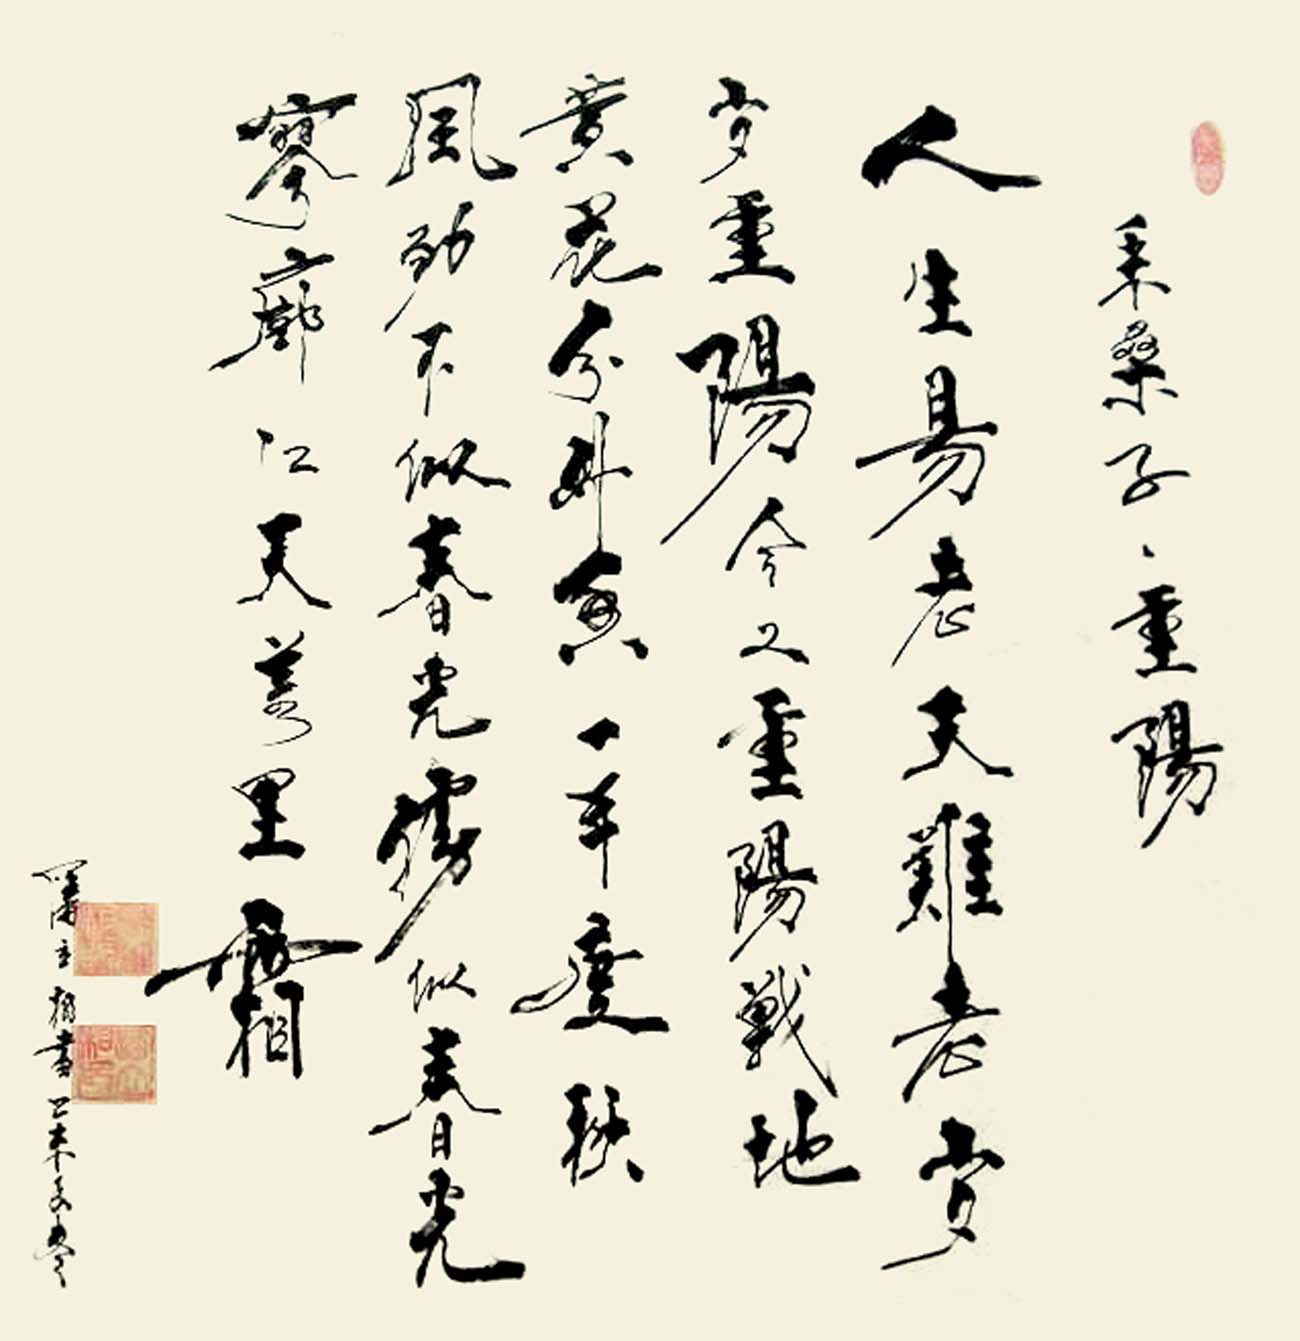 采桑子、重陽
人生易老天難老岁
岁重陽今又重陽戰地
黄花分外香一年度秋
風勁不似春光勝似春光
寥廓江天萬里霜
書乙未冬